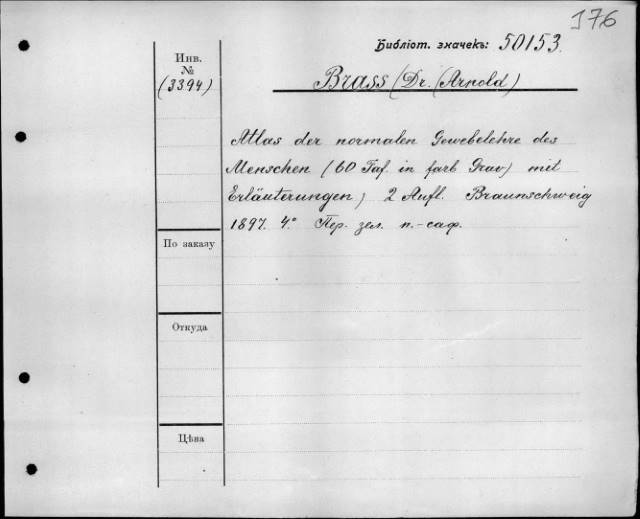 176
Библіот. значекъ: 50153.
Инв.
№
(3394)
Brass (Dr. (Arnold)
Atlas der normalen Gewebelehre des
Menschen (60 Taf. in farb Grav) mit
Erläuterungen) 2 Aufl. Braunschweig
1897. 4° Пер. зел. п.-саф.
По заказу
Откуда
Цѣна